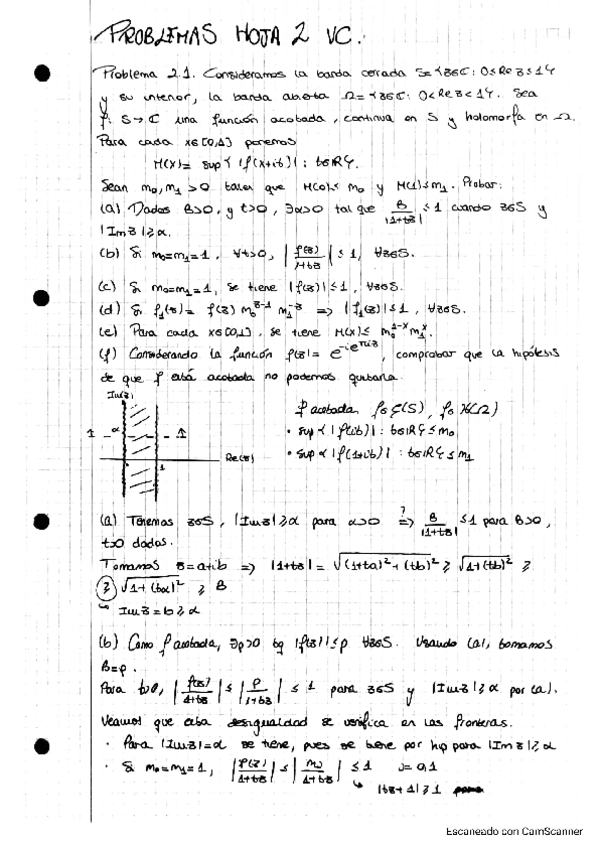 PROBLEMAS HOJA 2 VC.
Problema 2.1. Consideramos la banda cerrada S={z∈ℂ: 0≤Re z≤1}
y su interior, la banda abierta Ω={z∈ℂ: 0<Re z<1}. Sea
f: S→ℂ una función acotada, continua en S y holomorfa en Ω.
Para cada x∈[0,1] ponemos
M(x)= sup{|f(x+it)| : t∈ℝ}.
Sean m₀,m₁ >0 tales que M(0)≤m₀ y M(1)≤m₁. Probar:
(a) Dados B>0, y t>0, ∃α>0 tal que B/|1+tz| ≤1 cuando z∈S y
|Im z|≥α.
(b) Si m₀=m₁=1, ∀t>0, |f(z)/1+tz| ≤1, ∀z∈S.
(c) Si m₀=m₁=1, se tiene |f(z)|≤1, ∀z∈S.
(d) Si f₁(z)= f(z) m₀^{z-1} m₁^{-z} ⇒ |f₁(z)|≤1, ∀z∈S.
(e) Para cada x∈[0,1], se tiene M(x)≤ m₀^{1-x} m₁^{x}.
(f) Considerando la función f(z)= e^{-ie^{πiz}}, comprobar que la hipótesis
de que f está acotada no podemos quitarla.
Im(z)
f acotada, f∈C(S), f∈H(Ω)
1 α 1
• sup{|f(ib)| : b∈ℝ}≤m₀
Re(z)
• sup{|f(1+ib)| : b∈ℝ}≤m₁
1
(a) Tenemos z∈S, |Im z|≥α para α>0 ?⇒ B/|1+tz| ≤1 para B>0,
t>0 dados.
Tomamos z=a+ib ⇒ |1+tz| = √((1+ta)²+(tb)²) ≥ √(1+(tb)²) ≥
≥ √(1+(tα)²) ≥ B
↳ Im z=b≥α
(b) Como f acotada, ∃p>0 tq |f(z)|≤p ∀z∈S. Usando (a), tomamos
B=p.
Para t>0, |f(z)/1+tz| ≤ |p/1+tz| ≤ 1 para z∈S y |Im z|≥α por (a).
Veamos que esta desigualdad se verifica en las fronteras.
· Para |Im z|=α se tiene, pues se tiene por hip para |Im z|≥α
· Si m₀=m₁=1, |f(z)/1+tz| ≤ |mⱼ/1+tz| ≤1 j=0,1
↳ |tz+1|≥1
Escaneado con CamScanner